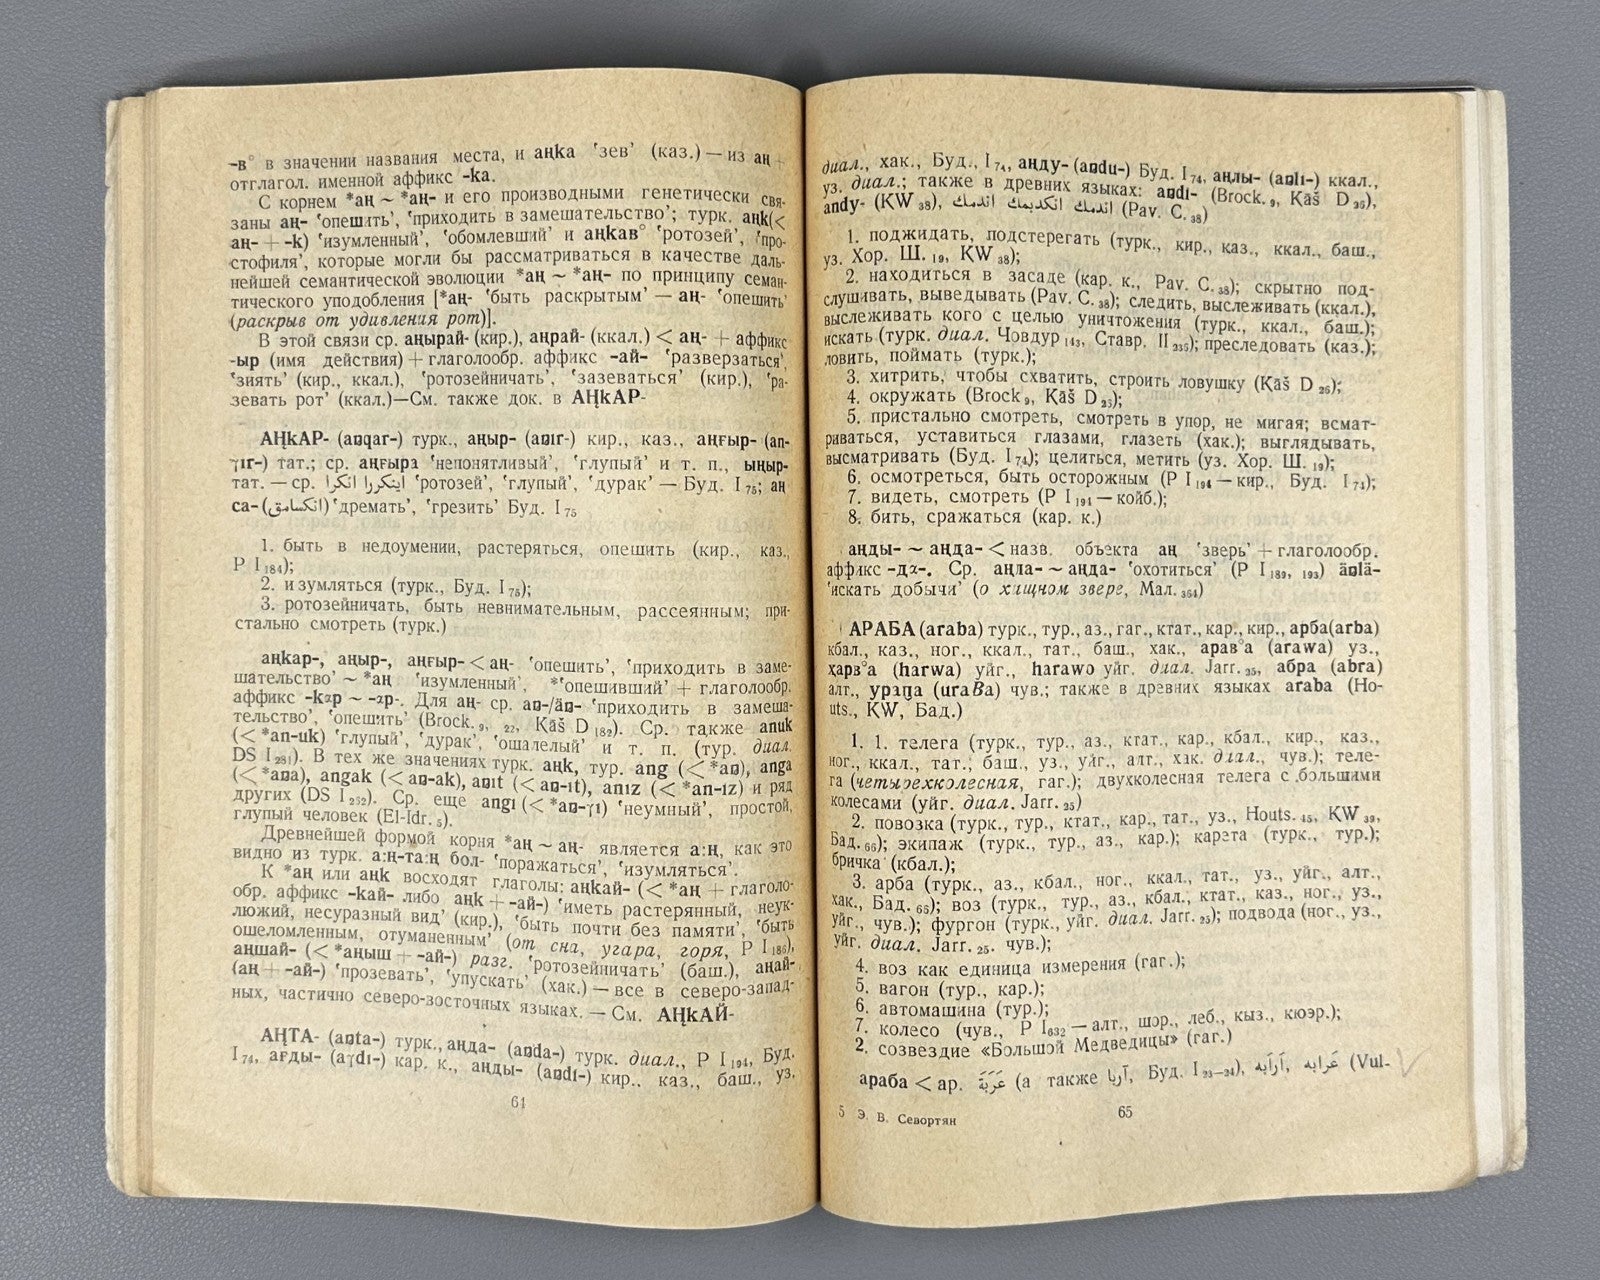 -в° в значении названия места, и аңkа ʽзевʼ (каз.) — из аң +
отглагол. именной аффикс -kа.
С корнем *аң ~ *аң- и его производными генетически свя-
заны аң- ʽопешитьʼ, ʽприходить в замешательствоʼ; турк. аңk(<
аң- + -k) ʽизумленныйʼ, ʽобомлевшийʼ и аңkав° ʽротозейʼ, ʽпро-
стофиляʼ, которые могли бы рассматриваться в качестве даль-
нейшей семантической эволюции *аң ~ *аң- по принципу семан-
тического уподобления [*аң- ʽбыть раскрытымʼ — аң- ʽопешитьʼ
(раскрыв от удивления рот)].
В этой связи ср. аңырай- (кир.), аңрай- (ккал.) < аң- + аффикс
-ыр (имя действия) + глаголообр. аффикс -ай- ʽразверзатьсяʼ,
ʽзиятьʼ (кир., ккал.), ʽротозейничатьʼ, ʽзазеватьсяʼ (кир.), ʽра-
зевать ротʼ (ккал.)—См. также док. в АҢkАР-
АҢkАР- (aŋqar-) турк., аңыр- (aŋır-) кир., каз., аңғыр- (aŋ-
γır-) тат.; ср. аңғыра ʽнепонятливыйʼ, ʽглупыйʼ и т. п., ыңыр-
тат. — ср. اينكررا انكرا ʽротозейʼ, ʽглупыйʼ, ʽдуракʼ — Буд. I 75; аң
са- (انكسامق) ʽдрематьʼ, ʽгрезитьʼ Буд. I 75
1. быть в недоумении, растеряться, опешить (кир., каз.,
Р I 184);
2. изумляться (турк., Буд. I 75);
3. ротозейничать, быть невнимательным, рассеянным; при-
стально смотреть (турк.)
аңkар-, аңыр-, аңғыр- < аң- ʽопешитьʼ, ʽприходить в заме-
шательствоʼ ~ *аң ʽизумленныйʼ, *ʽопешившийʼ + глаголообр.
аффикс -kар ~ -ар-. Для аң- ср. aŋ-/äŋ- ʽприходить в замеша-
тельствоʼ, ʽопешитьʼ (Brock. 9, 22, Ḳāš D 182). Ср. также anuk
(< *an-uk) ʽглупыйʼ, ʽдуракʼ, ʽошалелыйʼ и т. п. (тур. диал.
DS I 281). В тех же значениях турк. аңk, тур. ang (< *aŋ), anga
(< *aŋa), angak (< aŋ-ak), aŋıt (< aŋ-ıt), anız (< *an-ız) и ряд
других (DS I 252). Ср. еще angı (< *aŋ-γı) ʽнеумныйʼ, простой,
глупый человек (El-Idr. 5).
Древнейшей формой корня *аң ~ аң- является а:ң, как это
видно из турк. а:ң-та:ң бол- ʽпоражатьсяʼ, ʽизумлятьсяʼ.
К *аң или аңk восходят глаголы: аңkай- (< *аң + глаголо-
обр. аффикс -kай- либо аңk + -ай-) ʽиметь растерянный, неук-
люжий, несуразный видʼ (кир.), ʽбыть почти без памятиʼ, ʽбыть
ошеломленным, отуманеннымʼ (от сна, угара, горя, Р I 186),
аңшай- (< *аңыш + -ай-) разг. ʽротозейничатьʼ (баш.), аңай-
(аң + -ай-) ʽпрозеватьʼ, ʽупускатьʼ (хак.) — все в северо-запад-
ных, частично северо-восточных языках. — См. АҢkАЙ-
АҢТА- (aŋta-) турк., аңда- (aŋda-) турк. диал., Р I 194, Буд.
I 74, ағды- (aγdı-) кар. к., аңды- (aŋdı-) кир., каз., баш., уз.
64
диал., хак., Буд., I 74, аңду- (aŋdu-) Буд. I 74, аңлы- (aŋlı-) ккал.,
уз. диал.; также в древних языках: aŋdı- (Brock. 9, Ḳāš D 26),
andy- (KW 38), اندمك انكديمك اندمك (Pav. C. 38)
1. поджидать, подстерегать (турк., кир., каз., ккал., баш.,
уз. Хор. Ш. 19, KW 38);
2. находиться в засаде (кар. к., Pav. C. 38); скрытно под-
слушивать, выведывать (Pav. C. 38); следить, выслеживать (ккал.),
выслеживать кого с целью уничтожения (турк., ккал., баш.);
искать (турк. диал. Човдур 143, Ставр. II 235); преследовать (каз.);
ловить, поймать (турк.);
3. хитрить, чтобы схватить, строить ловушку (Ḳāš D 26);
4. окружать (Brock 9, Ḳāš D 25);
5. пристально смотреть, смотреть в упор, не мигая; всмат-
риваться, уставиться глазами, глазеть (хак.); выглядывать,
высматривать (Буд. I 74); целиться, метить (уз. Хор. Ш. 19);
6. осмотреться, быть осторожным (Р I 194 — кир., Буд. I 74);
7. видеть, смотреть (Р I 194 — койб.);
8. бить, сражаться (кар. к.)
аңды- ~ аңда- < назв. объекта аң ʽзверьʼ + глаголообр.
аффикс -да-. Ср. аңла- ~ аңда- ʽохотитьсяʼ (Р I 189, 193) äŋlä-
ʽискать добычиʼ (о хищном звере, Мал. 364)
АРАБА (araba) турк., тур., аз., гаг., ктат., кар., кир., арба (arba)
кбал., каз., ног., ккал., тат., баш., хак., арав°а (arawa) уз.,
ҳарв°а (harwa) уйг., harawo уйг. диал. Jarr. 25, абра (abra)
алт., урапа (uraBa) чув.; также в древних языках araba (Ho-
uts., KW, Бад.)
1. 1. телега (турк., тур., аз., ктат., кар., кбал., кир., каз.,
ног., ккал., тат., баш., уз., уйг., алт., хак. диал., чув.); теле-
га (четырехколесная, гаг.); двухколесная телега с большими
колесами (уйг. диал. Jarr. 25)
2. повозка (турк., тур., ктат., кар., тат., уз., Houts. 45, KW 39,
Бад. 66); экипаж (турк., тур., аз., кар.); карэта (турк., тур.);
бричка (кбал.);
3. арба (турк., аз., кбал., ног., ккал., тат., уз., уйг., алт.,
хак., Бад. 66); воз (турк., тур., аз., кбал., ктат., каз., ног., уз.,
уйг., чув.); фургон (турк., уйг. диал. Jarr. 25); подвода (ног., уз.,
уйг. диал. Jarr. 25. чув.);
4. воз как единица измерения (гаг.);
5. вагон (тур., кар.);
6. автомашина (тур.);
7. колесо (чув., Р I 632 — алт., шор., леб., кыз., кюэр.);
2. созвездие «Большой Медведицы» (гаг.)
араба < ар. عَرَبَة (а также آربا, Буд. I 23—24), عَرابه ,آرَابه (Vul-
5 Э. В. Севортян
65